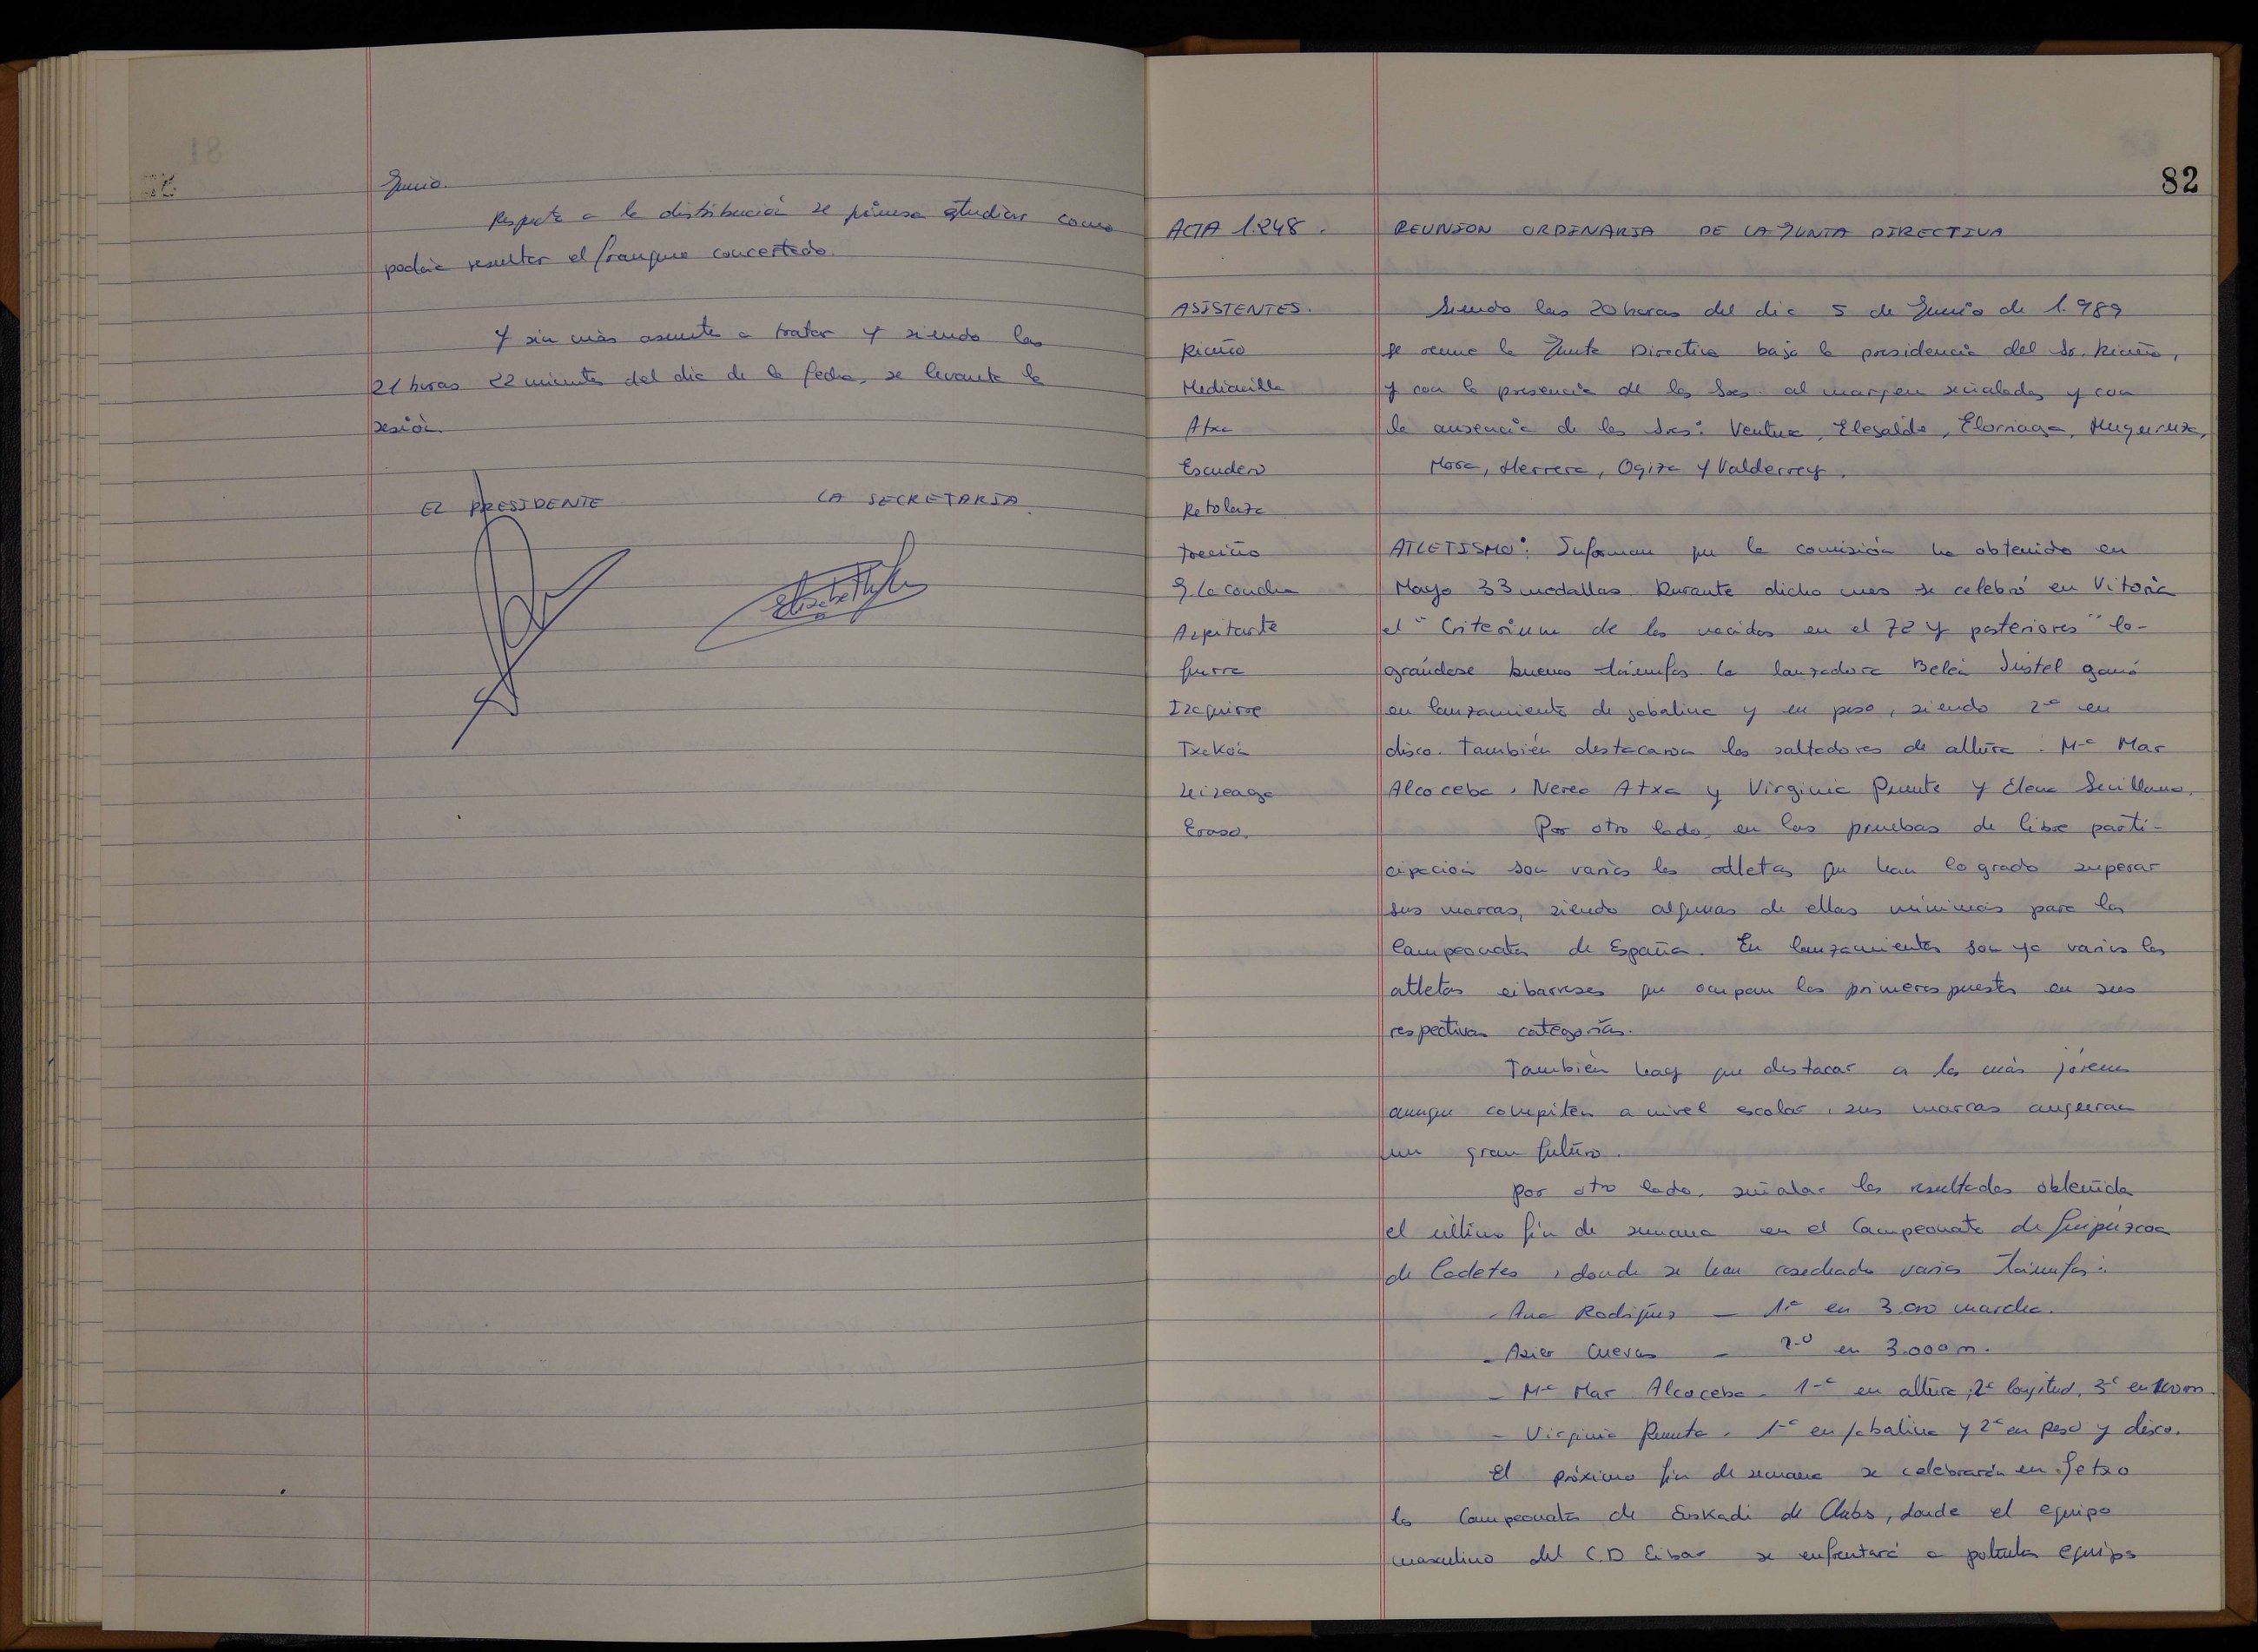 Junio.
Respecto a la distribución se piensa estudiar como
podría resultar el franqueo concertado.
Y sin más asuntos a tratar y siendo las
21 horas 22 minutos del dia de la fecha, se levanta la
sesión.
EL PRESIDENTE LA SECRETARIA
82
ACTA 1.248. REUNION ORDINARIA DE LA JUNTA DIRECTIVA
ASISTENTES.
Riaño
Mediavilla
Atxa
Escudero
Retolaza
Treviño
G. La concha
Azpitarte
Guerra
Izaguirre
Txekoa
Leizeaga
Eraso.
Siendo las 20 horas del dia 5 de Junio de 1.989
se reune la Junta Directiva bajo la presidencia del Sr. Riaño,
y con la presencia de los Sres. al margen señalados y con
la ausencia de los Sres: Ventura, Elegalde, Elorriaga, Muguruza,
Mora, Herrera, Ogiza y Valderrey.
ATLETISMO: Informan que la comisión ha obtenido en
Mayo 33 medallas. Durante dicho mes se celebró en Vitoria
el "Criterium de los nacidos en el 72 y posteriores" lo-
grándose buenos triunfos. La lanzadora Belén Justel ganó
en lanzamiento de jabalina y en peso, siendo 2ª en
disco. También destacaron los saltadores de altura: Mª Mar
Alcoceba, Nerea Atxa y Virginia Puente y Elena Sevillano.
Por otro lado, en las pruebas de libre parti-
cipación son varios los atletas que han logrado superar
sus marcas, siendo algunas de ellas mínimas para los
Campeonatos de España. En lanzamientos son ya varios los
atletas eibarreses que ocupan los primeros puestos en sus
respectivas categorías.
También hay que destacar a los más jóvenes
aunque compiten a nivel escolar, sus marcas auguran
un gran futuro.
Por otro lado, señalar los resultados obtenidos
el último fin de semana en el Campeonato de Guipúzcoa
de Cadetes, donde se han cosechado varios triunfos:
- Ana Rodríguez - 1ª en 3.000 marcha.
- Asier Cuevas - 2º en 3.000 m.
- Mª Mar Alcoceba - 1ª en altura, 2ª longitud, 3ª en
- Virginia Puente - 1ª en jabalina y 2ª en peso y disco.
El próximo fin de semana se celebrarán en Getxo
los Campeonatos de Euskadi de Clubs, donde el equipo
masculino del C.D Eibar se enfrentará a potentes equipos